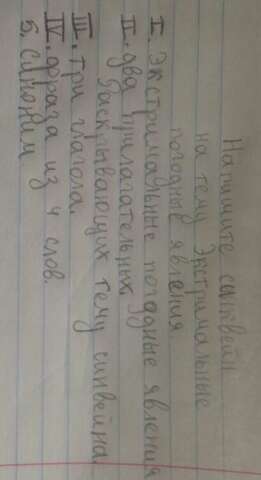 Напишите синквейн
на тему Экстримальные
погодные явления
I. Экстримальные погодные явления
II. два прилагательных.
Раскрывающих тему синвейна.
III. три глагола.
IV. фраза из 4 слов.
5. синоним